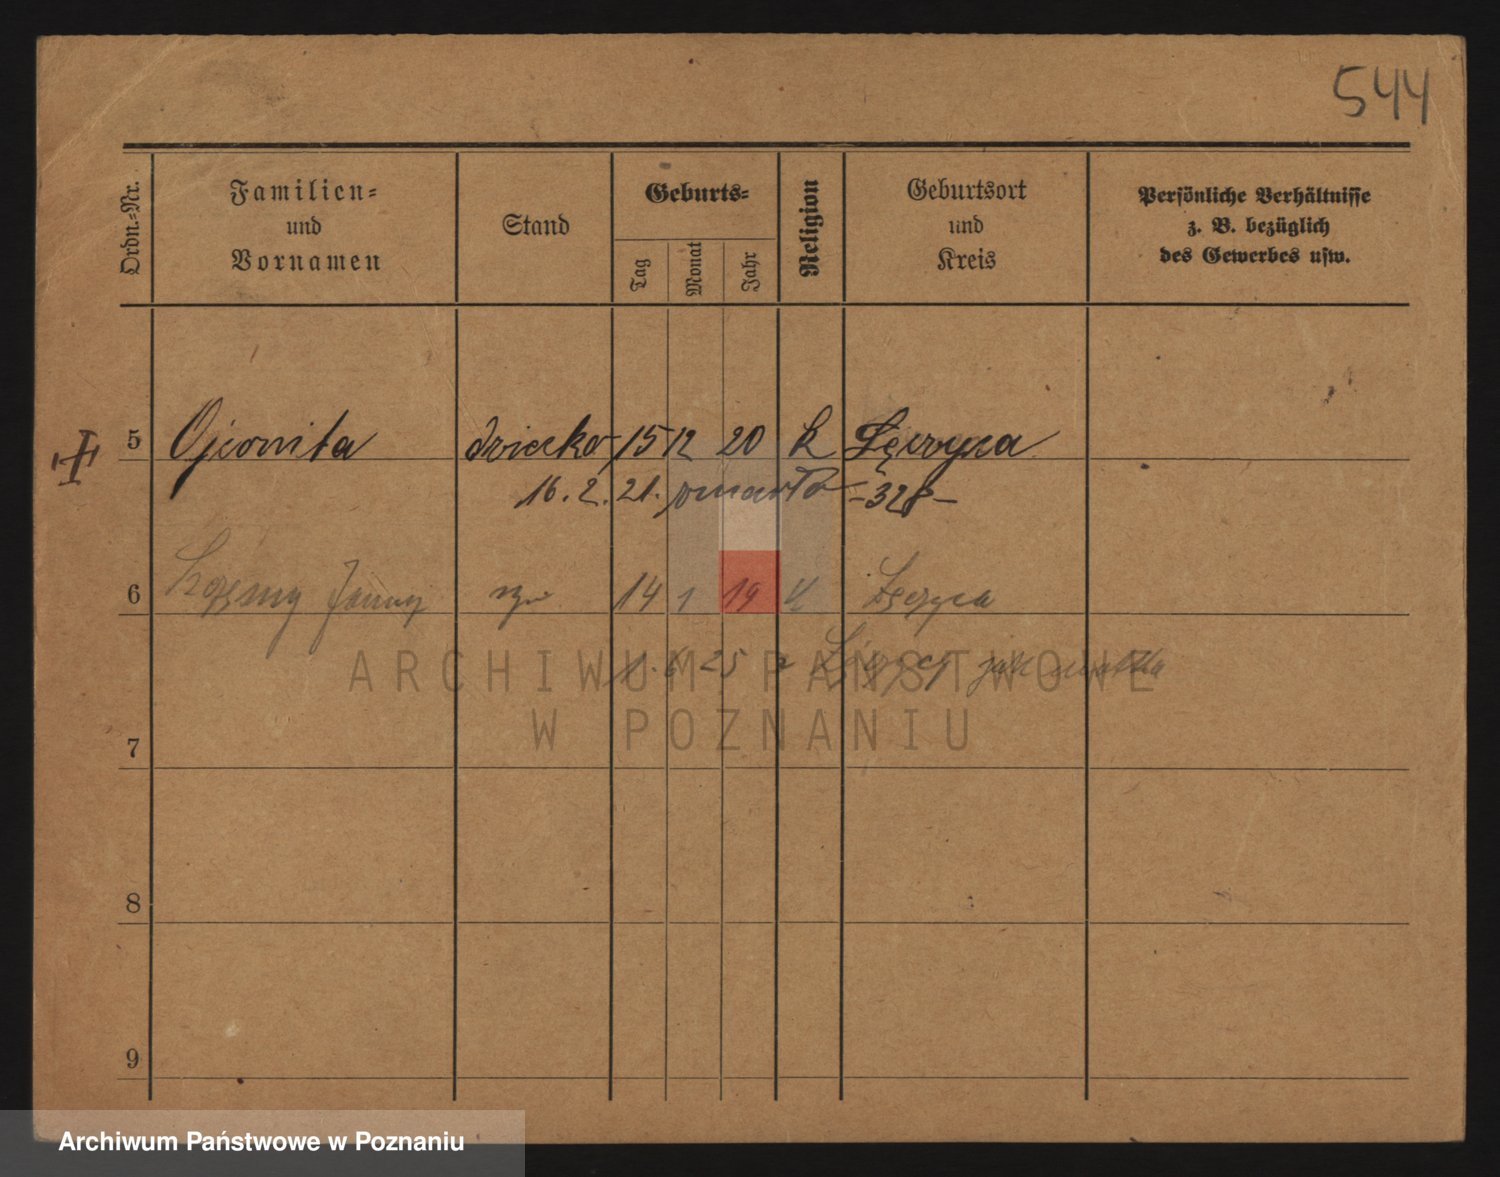 544
Ordn.-Nr.
Familien-
und
Vornamen
Stand
Geburts-
Tag
Monat
Jahr
Religion
Geburtsort
und
Kreis
Persönliche Verhältnisse
z. B. bezüglich
des Gewerbes usw.
5 dziecko 15 12 20 k Łęczyca
16. 2. 21. zmarło -328-
6 14 1 19 k Łęczyca
1. 6 25
ARCHIWUM PAŃSTWOWE
W POZNANIU
7
8
9
Archiwum Państwowe w Poznaniu